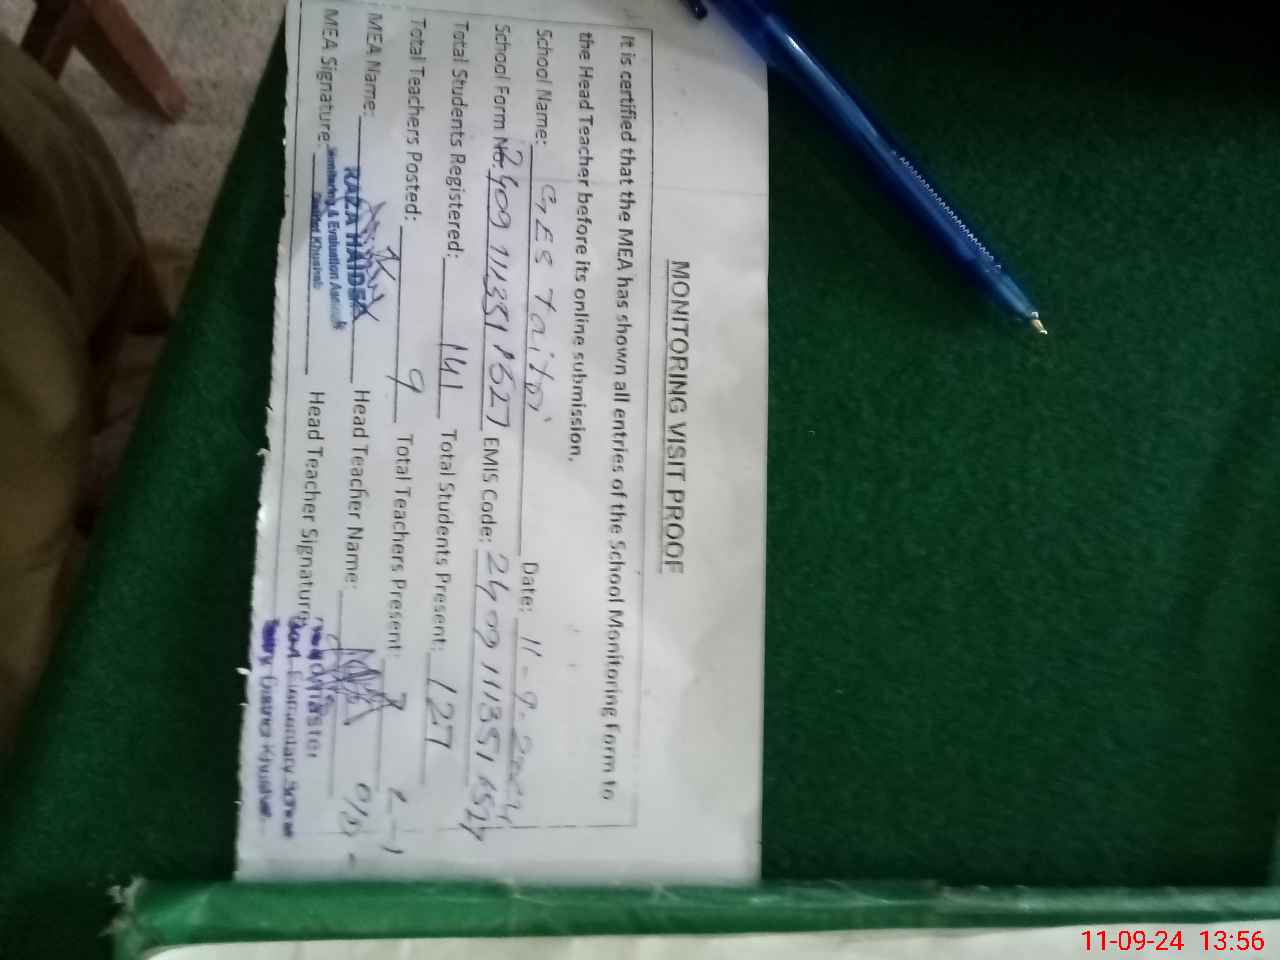 MONITORING VISIT PROOF
It is certified that the MEA has shown all entries of the School Monitoring Form to
the Head Teacher before its online submission.
School Name: GES Taitri Date: 11-9-2024
School Form No. EMIS Code:
Total Students Registered: 141 Total Students Present: 127
Total Teachers Posted: 9 Total Teachers Present:
MEA Name: Head Teacher Name:
RAZA HAIDER
MEA Signature: Head Teacher Signature:
Monitoring & Evaluation Assistant
District Khushab
Headmaster
Govt. Elementary School
District Khushab
11-09-24 13:56